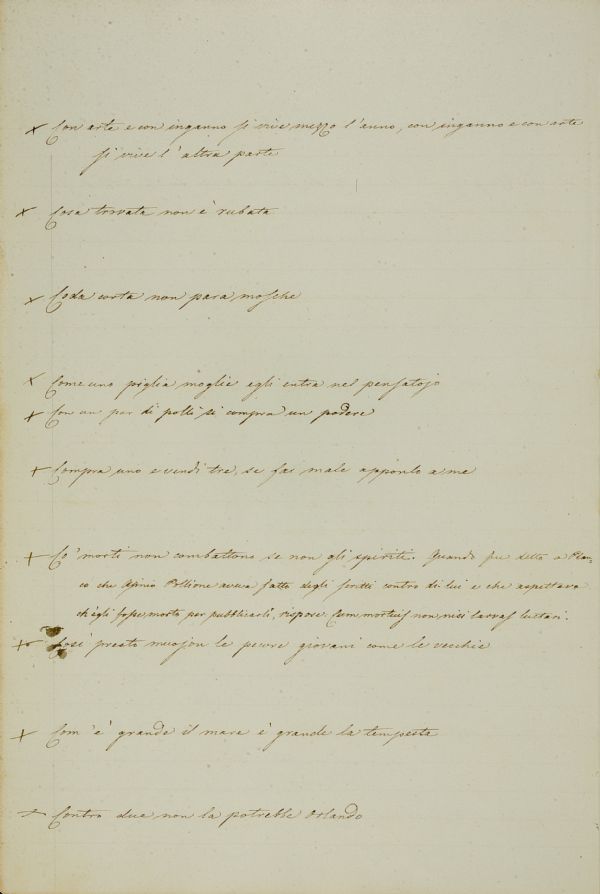 + Con arte e con inganno si vive mezzo l'anno, con inganno e con arte
si vive l'altra parte
+ Cosa trovata non è rubata
+ Coda corta non para mosche
+ Come uno piglia moglie egli entra nel pensatojo
+ Con un par di polli si compra un podere
+ Compra uno e vendi tre, se fai male apponlo a me
+ Co' morti non combattono se non gli spiriti. Quando fu detto a Plan-
co che Asinio Pollione aveva fatto degli scritti contro di lui e che aspettava
ch'egli fosse morto per pubblicarli, rispose: Cum mortuis non nisi larvas luctari.
+ Così presto muojon le pecore giovani come le vecchie
+ Com'è grande il mare è grande la tempesta
+ Contro due non la potrebbe Orlando